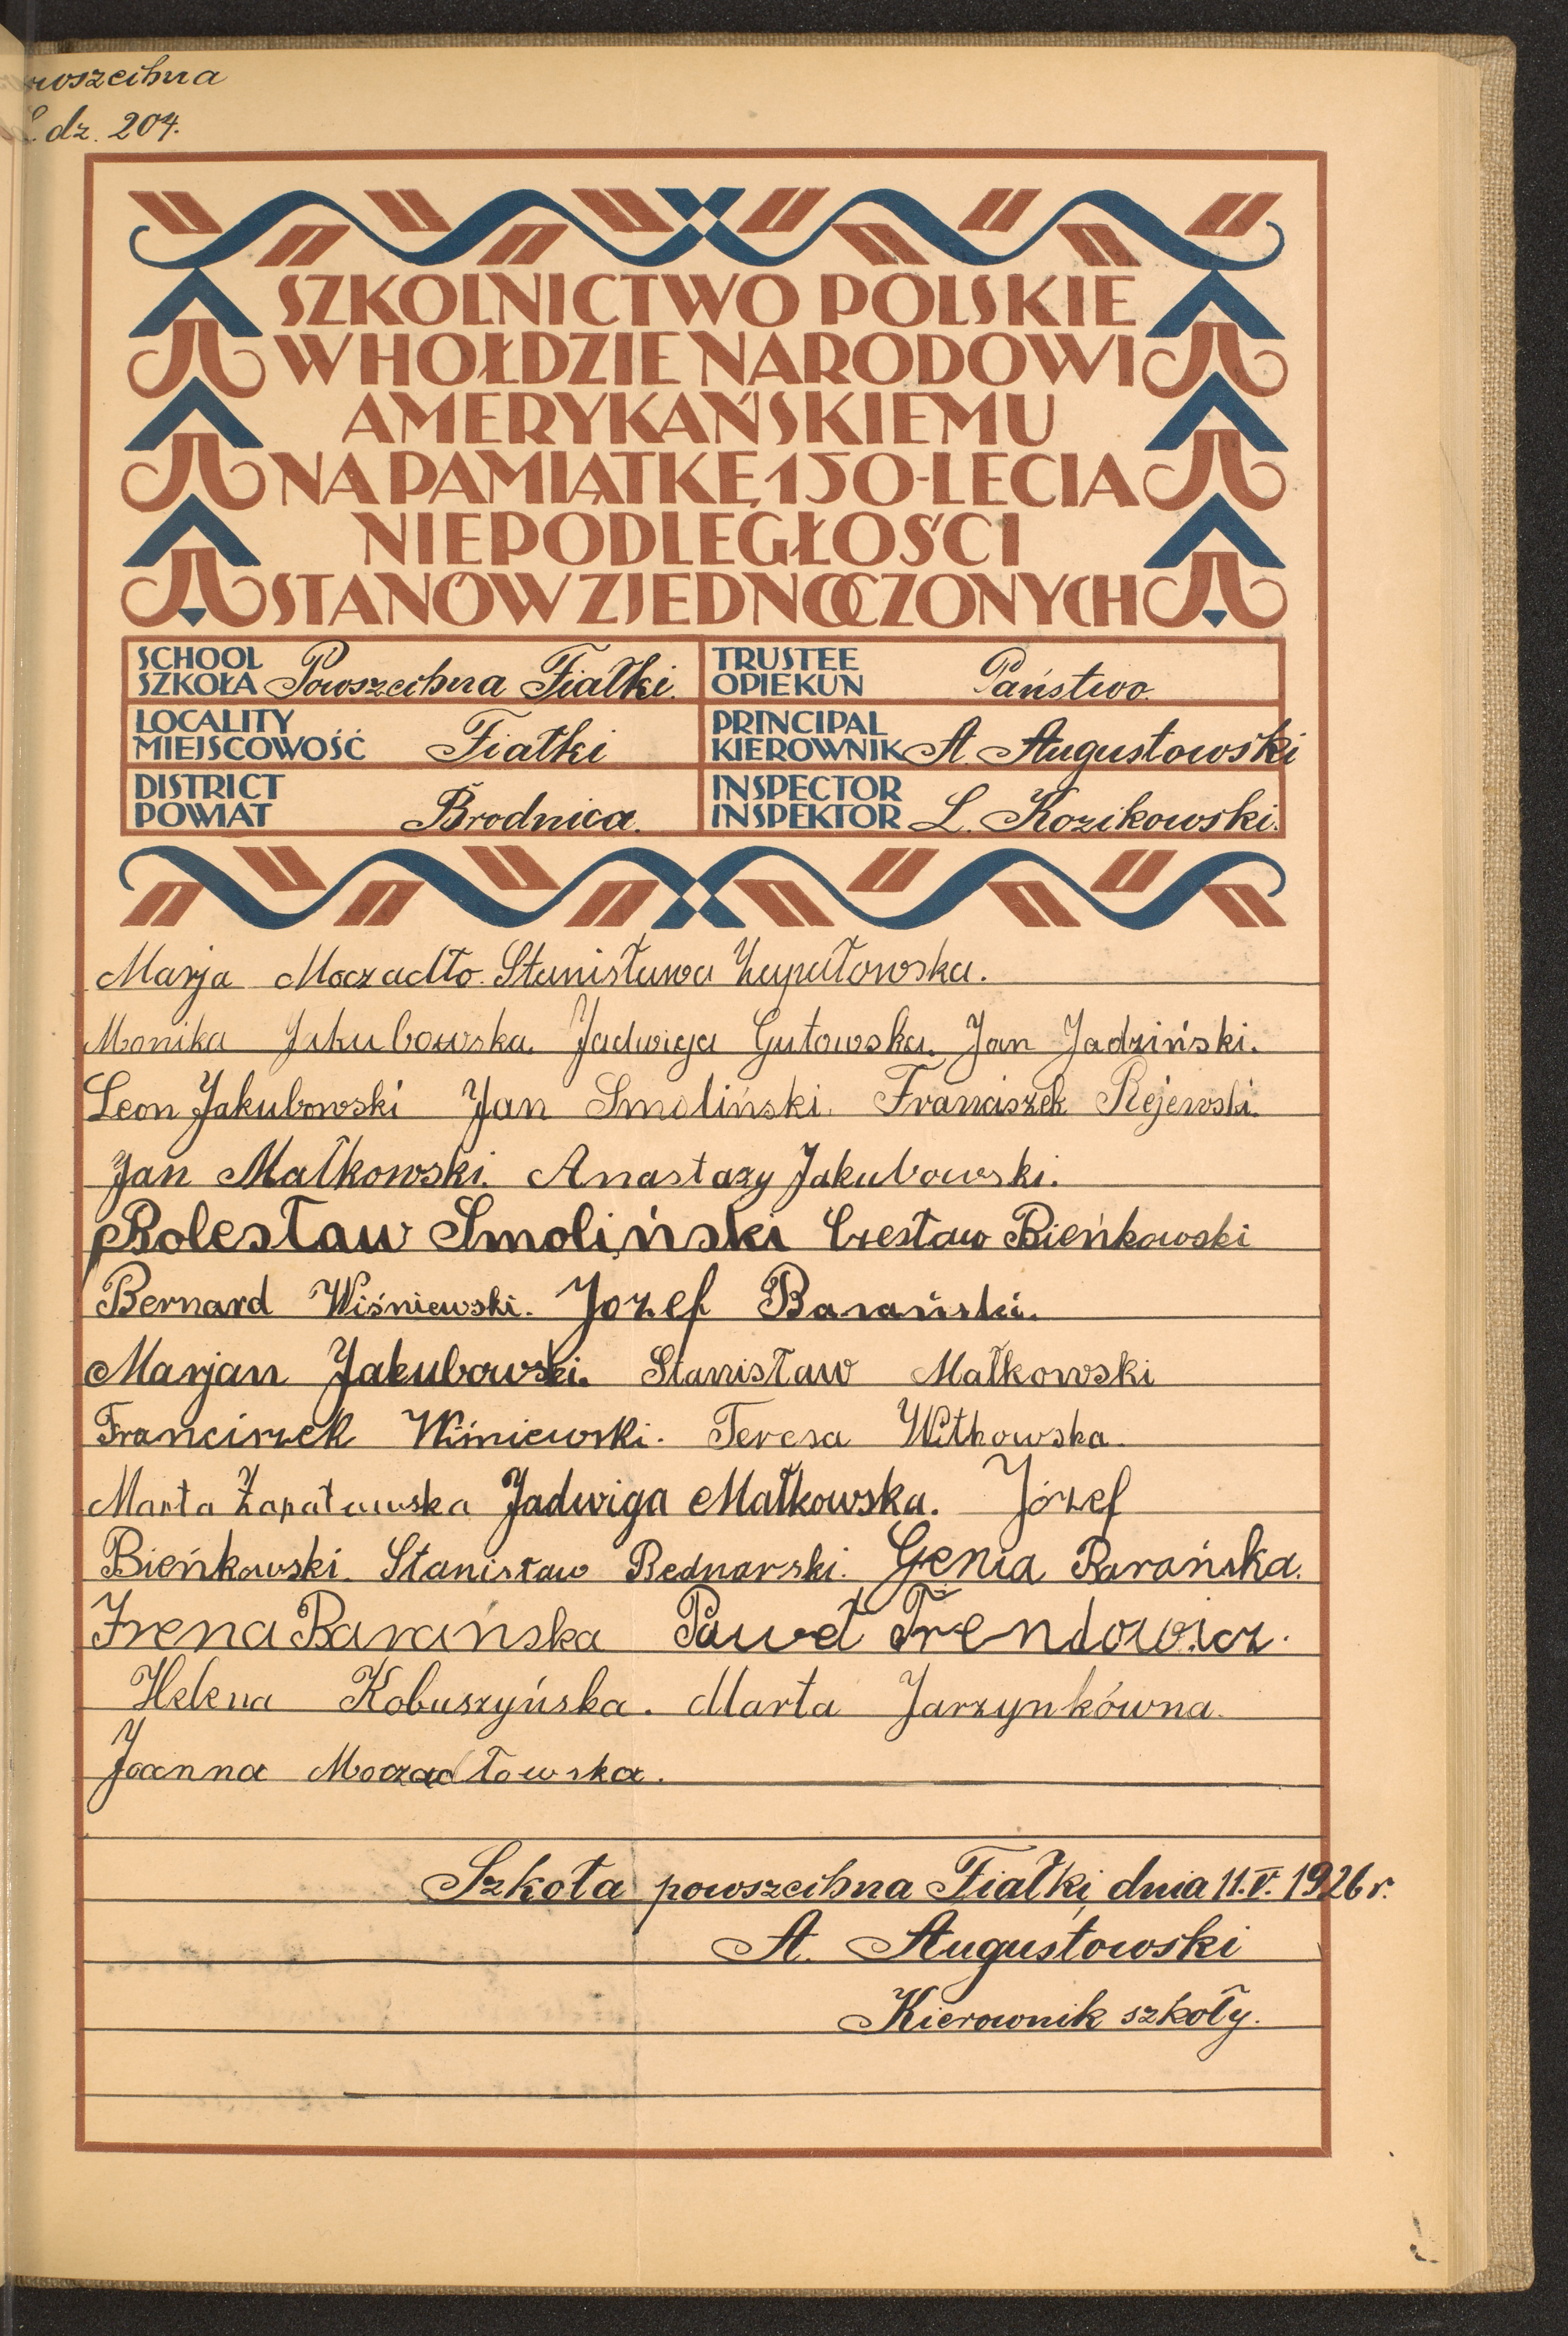 wszechna
L. dz. 204.
SZKOLNICTWO POLSKIE
W HOŁDZIE NARODOWI
AMERYKAŃSKIEMU
NA PAMIĄTKĘ 150-LECIA
NIEPODLEGŁOŚCI
STANÓW ZJEDNOCZONYCH
SCHOOL
SZKOŁA Powszechna Fiałki.
TRUSTEE
OPIEKUN Państwo.
LOCALITY
MIEJSCOWOŚĆ Fiałki
PRINCIPAL
KIEROWNIK A. Augustowski
DISTRICT
POWIAT Brodnica.
INSPECTOR
INSPEKTOR L. Kozikowski.
Marja Moczadło. Stanisława Zapałowska.
Monika Jakubowska. Jadwiga Gutowska. Jan Jadziński.
Leon Jakubowski Jan Smoliński. Franciszek Rejewski.
Jan Małkowski. Anastazy Jakubowski.
Bolesław Smoliński Czesław Bieńkowski
Bernard Wiśniewski. Jozef Barański.
Marjan Jakubowski. Stanisław Małkowski
Franciszek Wiśniewski. Teresa Witkowska.
Marta Zapałowska Jadwiga Małkowska. Józef
Bieńkowski. Stanisław Bednarski. Genia Barańska.
Irena Barańska Paweł Trendowicz.
Helena Kobuszyńska. Marta Jarzynkówna.
Joanna Moczadłowska.
Szkoła powszechna Fiałki, dnia 11.V. 1926 r.
A. Augustowski
Kierownik szkoły.